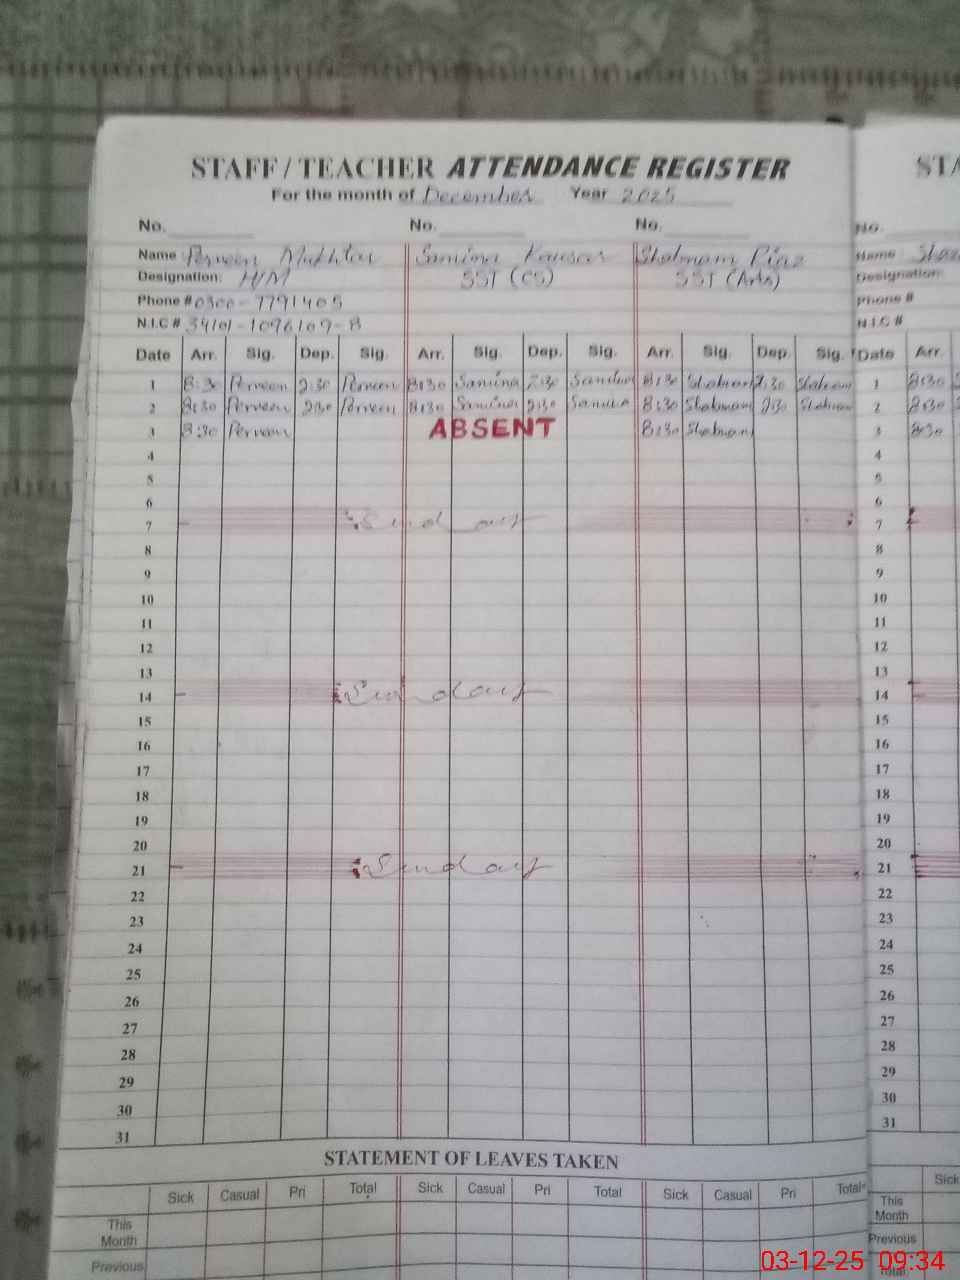 STAFF / TEACHER ATTENDANCE REGISTER STA
For the month of December Year 2025
No. No. No. No.
Name Perveen Mukhtar Samina Kausar Shabnam Riaz Name
Designation: H/M SST (CS) SST (Arts) Designation:
Phone # 0300-7791405 Phone #
N.I.C # 34101-1096109-8 N.I.C #
Date Arr. Sig. Dep. Sig. Arr. Sig. Dep. Sig. Arr. Sig. Dep. Sig. Date Arr.
1 8:30 Perveen 2:30 Perveen 8:30 Samina 2:30 Samina 8:30 Shabnam 2:30 Shabnam 1 8:30
2 8:30 Perveen 2:30 Perveen 8:30 Samina 2:30 Samina 8:30 Shabnam 2:30 Shabnam 2 8:30
3 8:30 Perveen ABSENT 8:30 Shabnam 3 8:30
4 4
5 5
6 6
7 Sunday 7
8 8
9 9
10 10
11 11
12 12
13 13
14 Sunday 14
15 15
16 16
17 17
18 18
19 19
20 20
21 Sunday 21
22 22
23 23
24 24
25 25
26 26
27 27
28 28
29 29
30 30
31 31
STATEMENT OF LEAVES TAKEN
Sick Casual Pri Total Sick Casual Pri Total Sick Casual Pri Total Sick
This Month This Month
Previous Previous
Total
03-12-25 09:34